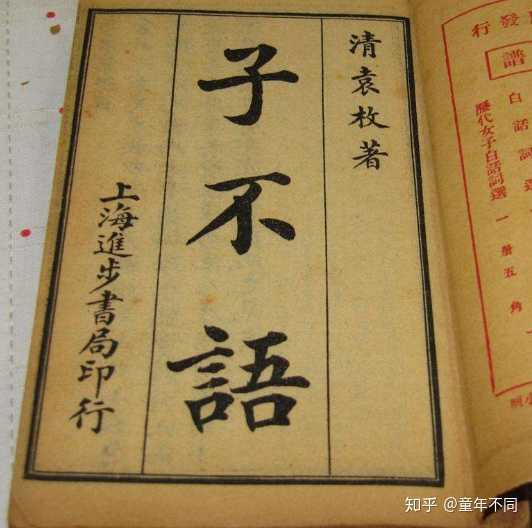 清袁枚著
子不語
上海進步書局印行
發
行
譜
白話詞選
歷代女子白話詞選一册五角
知乎 @童年不同